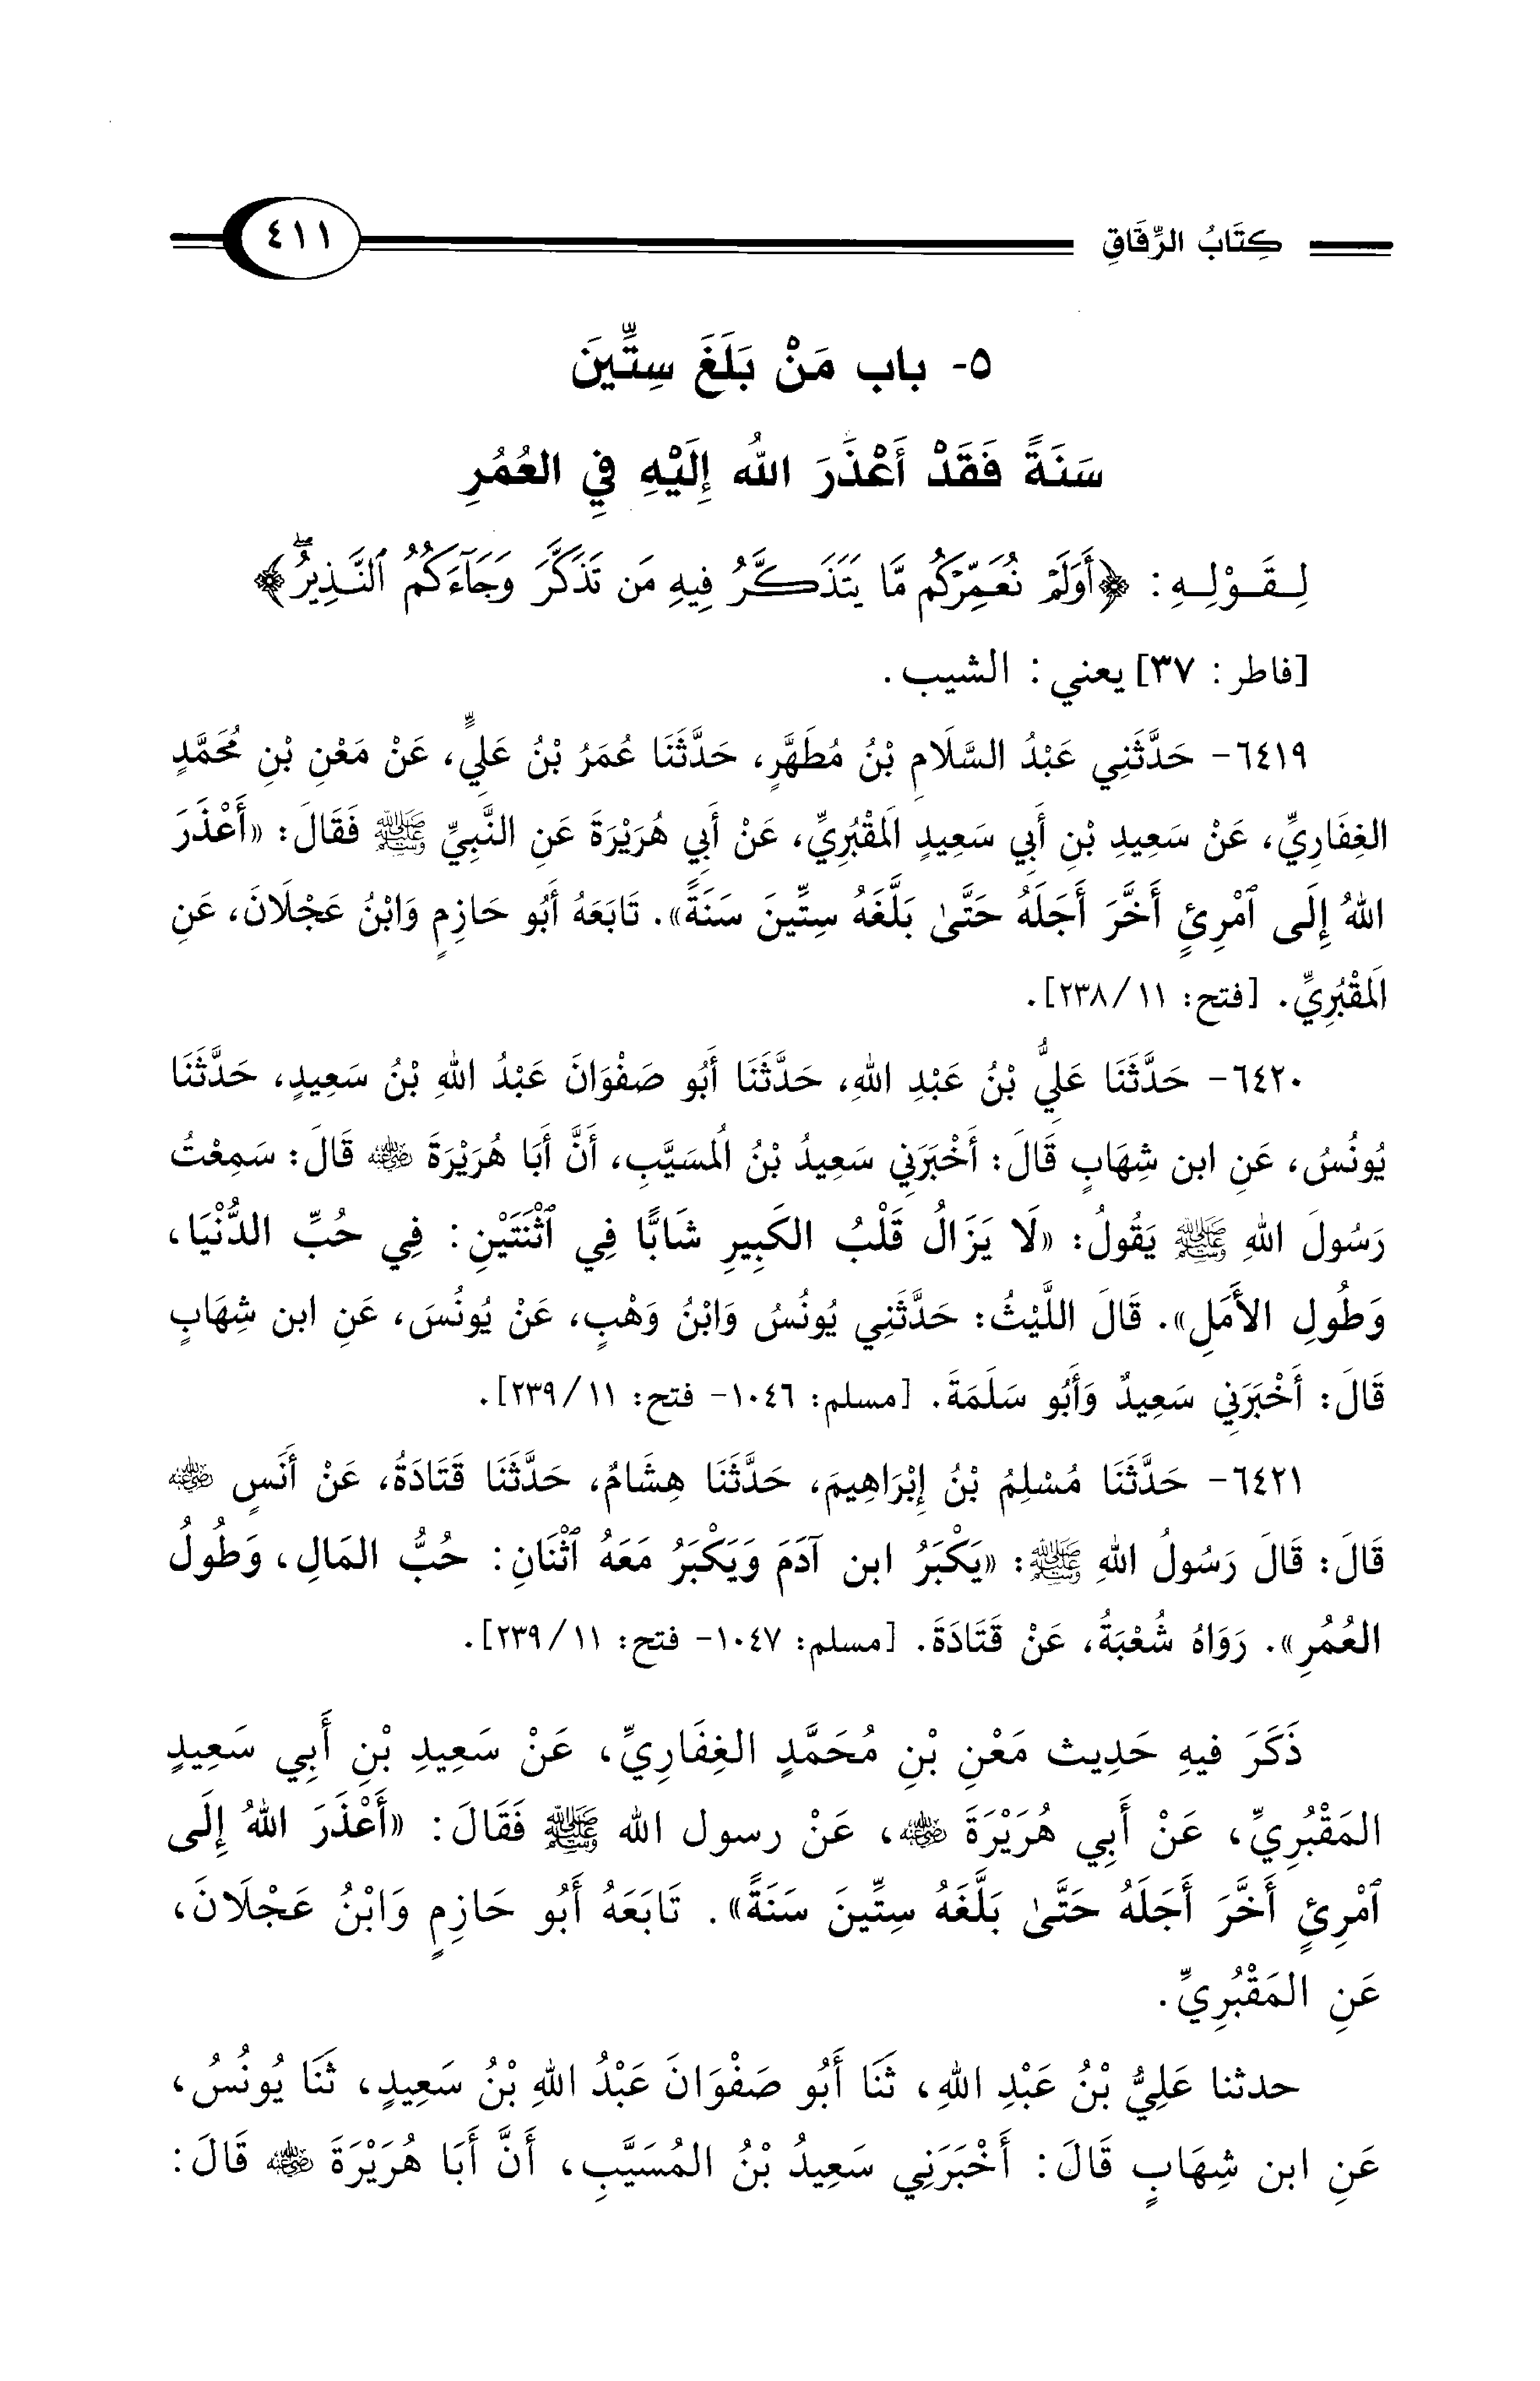 كِتَابُ الرِّقَاقِ ٤١١
٥- باب مَنْ بَلَغَ سِتِّينَ
سَنَةً فَقَدْ أَعْذَرَ اللهُ إِلَيْهِ فِي العُمُرِ
لِـقَـوْلِـهِ: ﴿أَوَلَمْ نُعَمِّرْكُم مَّا يَتَذَكَّرُ فِيهِ مَن تَذَكَّرَ وَجَاءَكُمُ ٱلنَّذِيرُ﴾
[فاطر: ٣٧] يعني: الشيب.
٦٤١٩- حَدَّثَنِي عَبْدُ السَّلَامِ بْنُ مُطَهَّرٍ، حَدَّثَنَا عُمَرُ بْنُ عَلِيٍّ، عَنْ مَعْنِ بْنِ مُحَمَّدٍ
الغِفَارِيِّ، عَنْ سَعِيدِ بْنِ أَبِي سَعِيدٍ المَقْبُرِيِّ، عَنْ أَبِي هُرَيْرَةَ عَنِ النَّبِيِّ ﷺ فَقَالَ: «أَعْذَرَ
اللهُ إِلَى ٱمْرِئٍ أَخَّرَ أَجَلَهُ حَتَّىٰ بَلَّغَهُ سِتِّينَ سَنَةً». تَابَعَهُ أَبُو حَازِمٍ وَابْنُ عَجْلَانَ، عَنِ
المَقْبُرِيِّ. [فتح: ١١/ ٢٣٨].
٦٤٢٠- حَدَّثَنَا عَلِيُّ بْنُ عَبْدِ اللهِ، حَدَّثَنَا أَبُو صَفْوَانَ عَبْدُ اللهِ بْنُ سَعِيدٍ، حَدَّثَنَا
يُونُسُ، عَنِ ابن شِهَابٍ قَالَ: أَخْبَرَنِي سَعِيدُ بْنُ المُسَيَّبِ، أَنَّ أَبَا هُرَيْرَةَ رضي الله عنه قَالَ: سَمِعْتُ
رَسُولَ اللهِ ﷺ يَقُولُ: «لَا يَزَالُ قَلْبُ الكَبِيرِ شَابًّا فِي ٱثْنَتَيْنِ: فِي حُبِّ الدُّنْيَا،
وَطُولِ الأَمَلِ». قَالَ اللَّيْثُ: حَدَّثَنِي يُونُسُ وَابْنُ وَهْبٍ، عَنْ يُونُسَ، عَنِ ابن شِهَابٍ
قَالَ: أَخْبَرَنِي سَعِيدٌ وَأَبُو سَلَمَةَ. [مسلم: ١٠٤٦- فتح: ١١/ ٢٣٩].
٦٤٢١- حَدَّثَنَا مُسْلِمُ بْنُ إِبْرَاهِيمَ، حَدَّثَنَا هِشَامٌ، حَدَّثَنَا قَتَادَةُ، عَنْ أَنَسٍ رضي الله عنه
قَالَ: قَالَ رَسُولُ اللهِ ﷺ: «يَكْبَرُ ابن آدَمَ وَيَكْبَرُ مَعَهُ ٱثْنَانِ: حُبُّ المَالِ، وَطُولُ
العُمُرِ». رَوَاهُ شُعْبَةُ، عَنْ قَتَادَةَ. [مسلم: ١٠٤٧- فتح: ١١/ ٢٣٩].
ذَكَرَ فيهِ حَدِيث مَعْنِ بْنِ مُحَمَّدٍ الغِفَارِيِّ، عَنْ سَعِيدِ بْنِ أَبِي سَعِيدٍ
المَقْبُرِيِّ، عَنْ أَبِي هُرَيْرَةَ رضي الله عنه، عَنْ رسول الله ﷺ فَقَالَ: «أَعْذَرَ اللهُ إِلَى
ٱمْرِئٍ أَخَّرَ أَجَلَهُ حَتَّىٰ بَلَّغَهُ سِتِّينَ سَنَةً». تَابَعَهُ أَبُو حَازِمٍ وَابْنُ عَجْلَانَ،
عَنِ المَقْبُرِيِّ.
حدثنا عَلِيُّ بْنُ عَبْدِ اللهِ، ثَنَا أَبُو صَفْوَانَ عَبْدُ اللهِ بْنُ سَعِيدٍ، ثَنَا يُونُسُ،
عَنِ ابن شِهَابٍ قَالَ: أَخْبَرَنِي سَعِيدُ بْنُ المُسَيَّبِ، أَنَّ أَبَا هُرَيْرَةَ رضي الله عنه قَالَ: